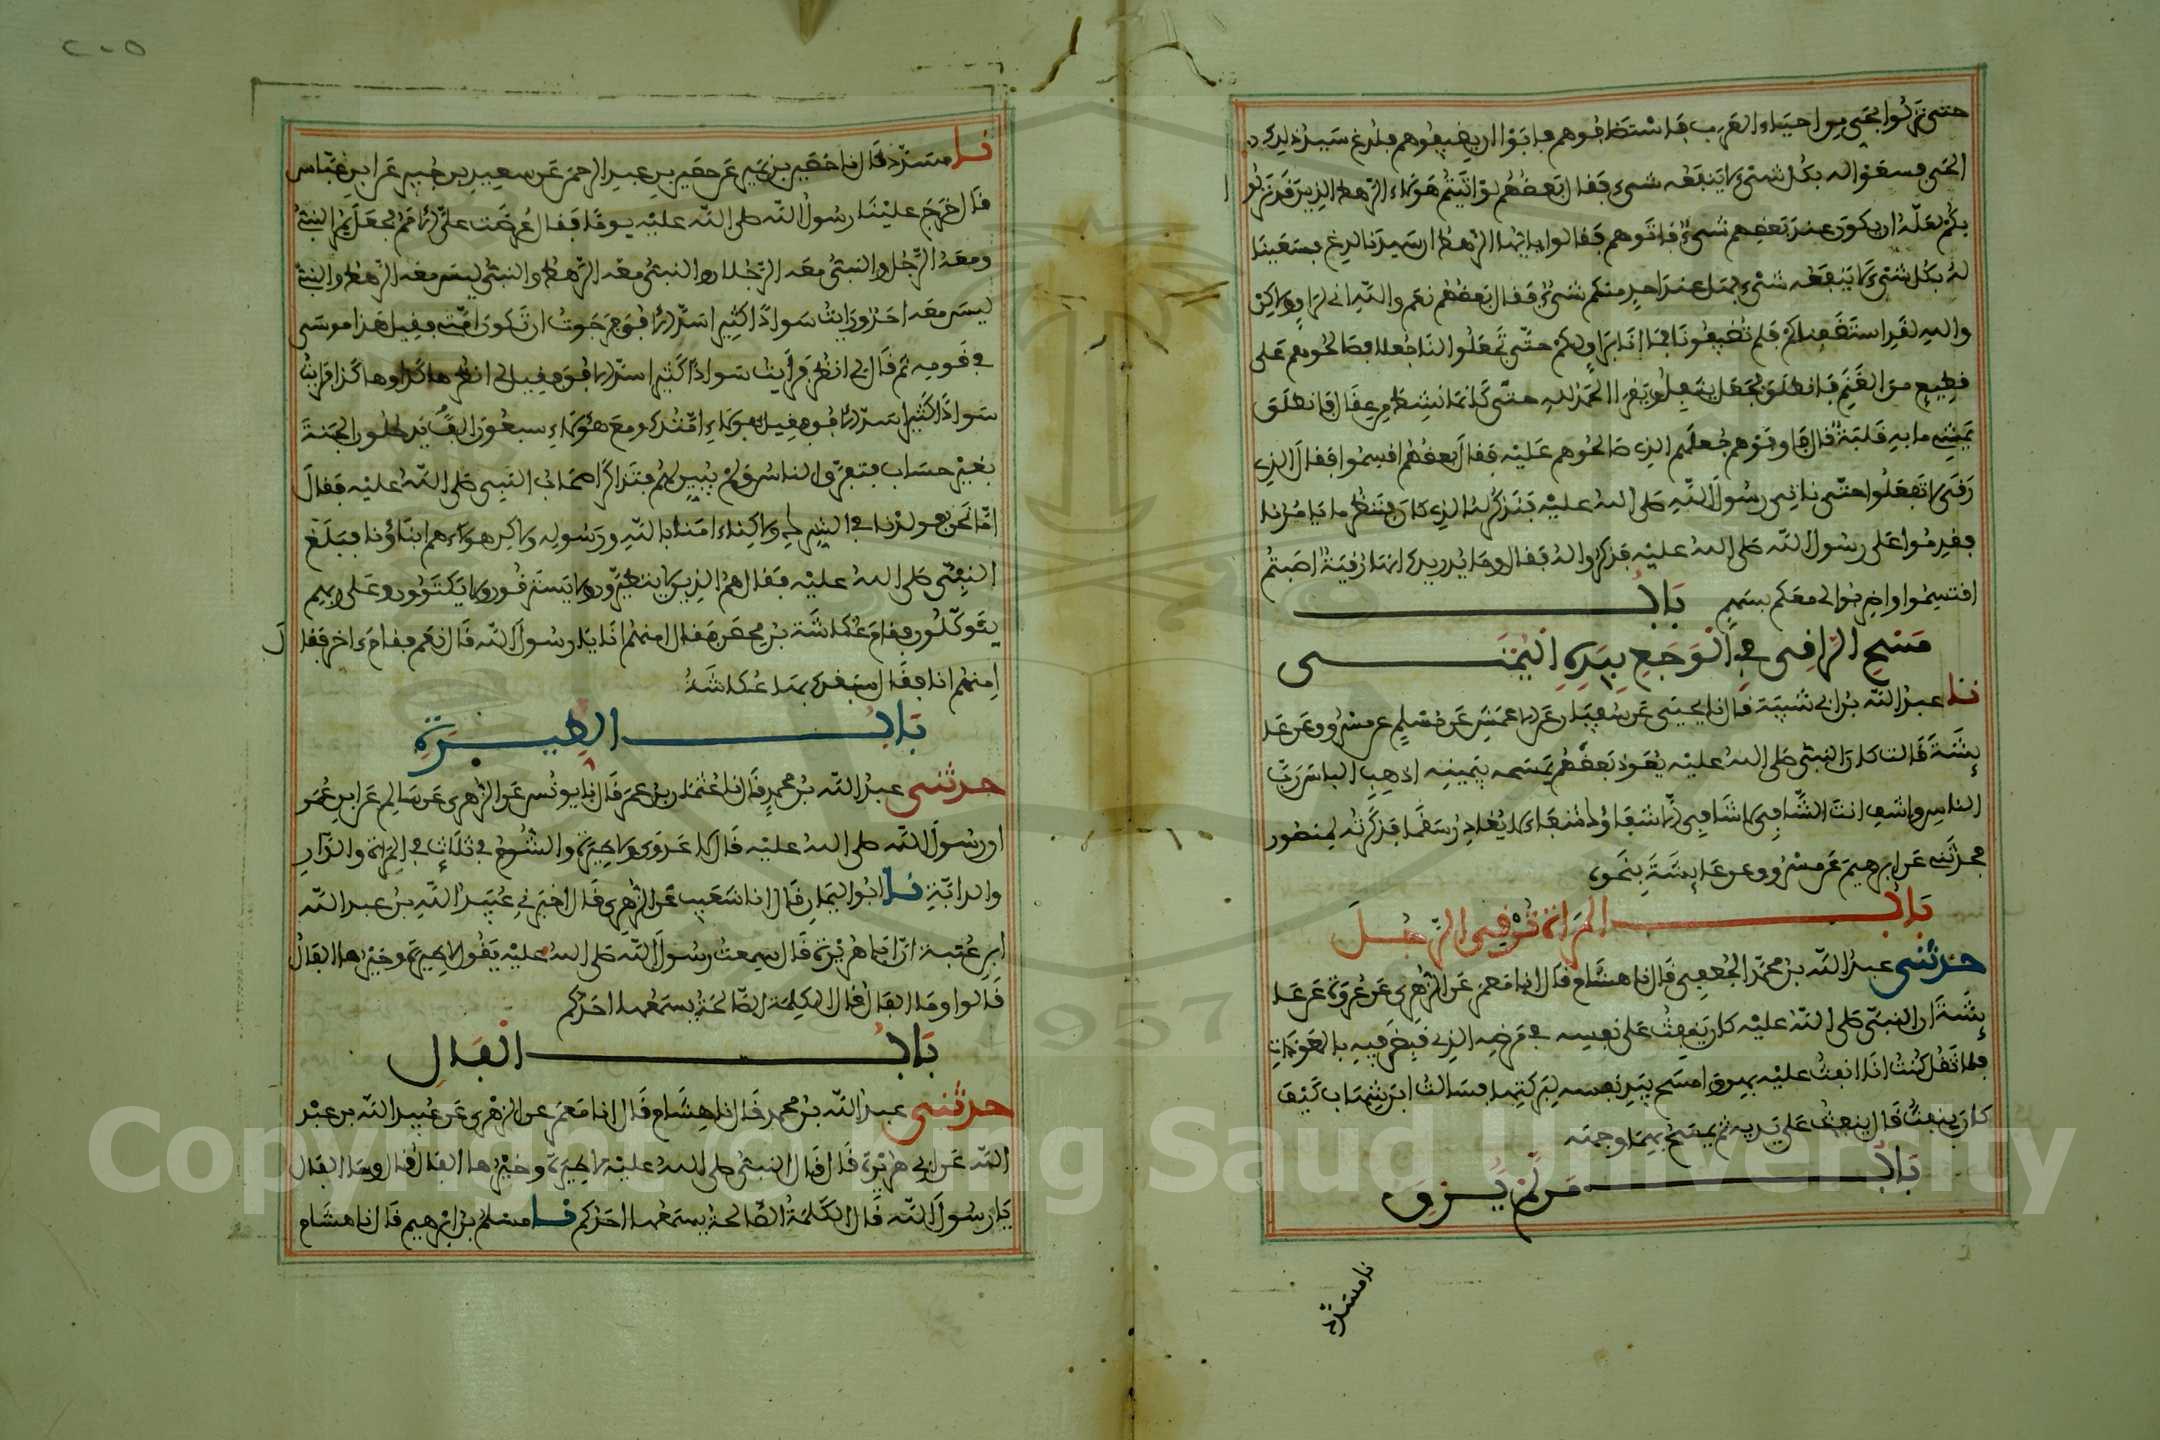 حتى نزلوا بحي من احياء العرب فاستضافوهم فابوا ان يضيفوهم فلدغ سيد ذلك
الحي فسعوا له بكل شيء لا ينفعه شيء فقال بعضهم لو اتيتم هؤلاء الرهط الذين قد نزلوا
بكم لعله ان يكون عند بعضهم شيء فاتوهم فقالوا يا ايها الرهط ان سيدنا لدغ فسعينا
له بكل شيء لا ينفعه شيء فهل عند احد منكم شيء فقال بعضهم نعم والله اني لراق ولاكن
والله لقد استضفناكم فلم تضيفونا فما انا براق لكم حتى تجعلوا لنا جعلا فصالحوهم على
قطيع من الغنم فانطلق فجعل يتفل ويقرا الحمد لله حتى كانما نشط من عقال فانطلق
يمشي ما به قلبة قال فاوفوهم جعلهم الذي صالحوهم عليه فقال بعضهم اقسموا فقال الذي
رقى لا تفعلوا حتى ناتي رسول الله صلى الله عليه فنذكر له الذي كان فننظر ما يامرنا
فقدموا على رسول الله صلى الله عليه فذكروا له فقال وما يدريك انها رقية اصبتم
اقتسموا واضربوا لي معكم بسهم باب
مسح الراقي في الوجع بيده اليمنى
نا عبد الله بن ابي شيبة قال نا يحيى عن سفيان عن الاعمش عن مسلم عن مسروق عن عا
ئشة قالت كان النبي صلى الله عليه يعوذ بعضهم يمسحه بيمينه اذهب الباس رب
الناس واشف انت الشافي لا شافي لا شفاؤك شفاء لا يغادر سقما فذكرته لمنصور
فحدثني عن ابرهيم عن مسروق عن عائشة بنحوه
باب المراة ترقي الرجل
حدثني عبد الله بن محمد الجعفي قال نا هشام قال انا معمر عن الزهري عن عروة عن عا
ئشة ان النبي صلى الله عليه كان ينفث على نفسه في مرضه الذي قبض فيه بالمعوذات
فلما ثقل كنت انا انفث عليه بهن وامسح بيد نفسه لبركتها فسالت ابن شهاب كيف
كان ينفث قال ينفث على يديه ثم يمسح بهما وجهه
باب من لم يرق
نا مسدد
نا مسدد قال نا حصين بن نمير عن حصين بن عبد الرحمن عن سعيد بن جبير عن ابن عباس
قال خرج علينا رسول الله صلى الله عليه يوما فقال عرضت علي الامم فجعل يمر النبي
ومعه الرجل والنبي معه الرجلان والنبي معه الرهط والنبي ليس معه الرهط والنبي
ليس معه احد ورايت سوادا كثيرا سد الافق فرجوت ان تكون امتي فقيل هذا موسى
في قومه ثم قال لي انظر فرايت سوادا كثيرا سد الافق فقيل لي انظر هاكذا وهاكذا فرايت
سوادا كثيرا سد الافق فقيل هؤلاء امتك ومع هؤلاء سبعون الف يدخلون الجنة
بغير حساب فتفرق الناس ولم يبين لهم فتذاكر اصحاب النبي صلى الله عليه فقال
اما نحن فولدنا في الشرك ولاكنا امنا بالله ورسوله ولاكن هؤلاء هم ابناؤنا فبلغ
النبي صلى الله عليه فقال هم الذين لا يتطيرون ولا يسترقون ولا يكتوون وعلى ربهم
يتوكلون فقام عكاشة بن محصن فقال امنهم انا يا رسول الله قال نعم فقام ءاخر فقال
امنهم انا فقال سبقك بها عكاشة
باب الطيرة
حدثني عبد الله بن محمد قال نا عثمان بن عمر قال نا يونس عن الزهري عن سالم عن ابن عمر
ان رسول الله صلى الله عليه قال لا عدوى ولا طيرة والشوم في ثلاث في المراة والدار
والدابة نا ابو اليمان قال انا شعيب عن الزهري قال اخبرني عبيد الله بن عبد الله
ابن عتبة ان ابا هريرة قال سمعت رسول الله صلى الله عليه يقول لا طيرة وخيرها الفال
قالوا وما الفال قال الكلمة الصالحة يسمعها احدكم
باب الفال
حدثني عبد الله بن محمد قال نا هشام قال انا معمر عن الزهري عن عبيد الله بن عبد
الله عن ابي هريرة قال قال النبي صلى الله عليه لا طيرة وخيرها الفال قال وما الفال
يا رسول الله قال الكلمة الصالحة يسمعها احدكم نا مسلم بن ابرهيم قال نا هشام
٢٠٥
1957
Copyright © King Saud University